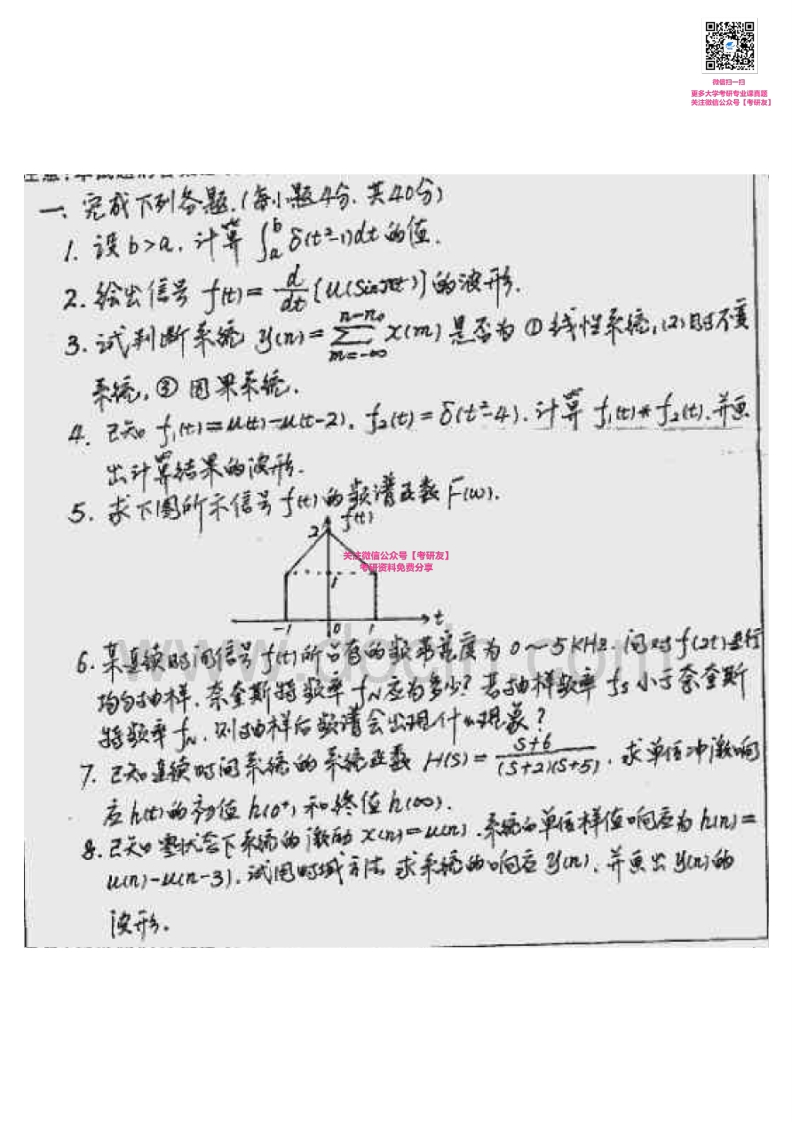 微信扫一扫
更多大学考研专业课真题
关注微信公众号【考研友】
一、完成下列各题.(每小题4分.共40分)
1. 设 b>a, 计算 ∫_a^b δ(t²-1)dt 的值.
2. 绘出信号 f(t) = d/dt [u(sinπt)] 的波形.
3. 试判断系统 y(n) = ∑_{m=-∞}^{n-n₀} x(m) 是否为 ① 线性系统, (2) 时不变
系统, ③ 因果系统.
4. 已知 f₁(t) = u(t)-u(t-2), f₂(t) = δ(t²-4). 计算 f₁(t)*f₂(t). 并画
出计算结果的波形.
5. 求下图所示信号 f(t) 的频谱函数 F(ω).
f(t)
2
关注微信公众号【考研友】
考研资料免费分享
1
-1 0 1 t
6. 某连续时间信号 f(t) 所占有的频带宽度为 0~5KHz. 问对 f(2t) 进行
均匀抽样, 奈奎斯特频率 f_N 应为多少? 若抽样频率 f_s 小于奈奎斯
特频率 f_N, 则抽样后频谱会出现什么现象?
7. 已知连续时间系统的系统函数 H(S) = (S+6)/((S+2)(S+5)), 求单位冲激响
应 h(t) 的初值 h(0⁺) 和终值 h(∞).
8. 已知零状态下系统的激励 x(n)=u(n), 系统的单位样值响应为 h(n)=
u(n)-u(n-3), 试用时域方法求系统的响应 y(n), 并画出 y(n) 的
波形.